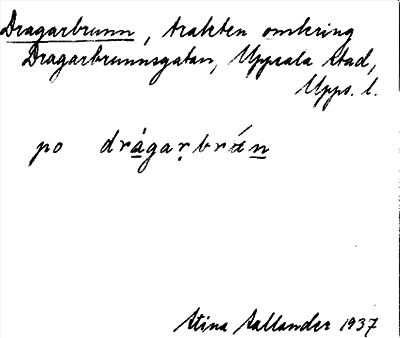 Dragarbrunn, trakten omkring
Dragarbrunnsgatan, Uppsala stad,
Upps. l.
po drágaṛbrán
Stina Sallander 1937